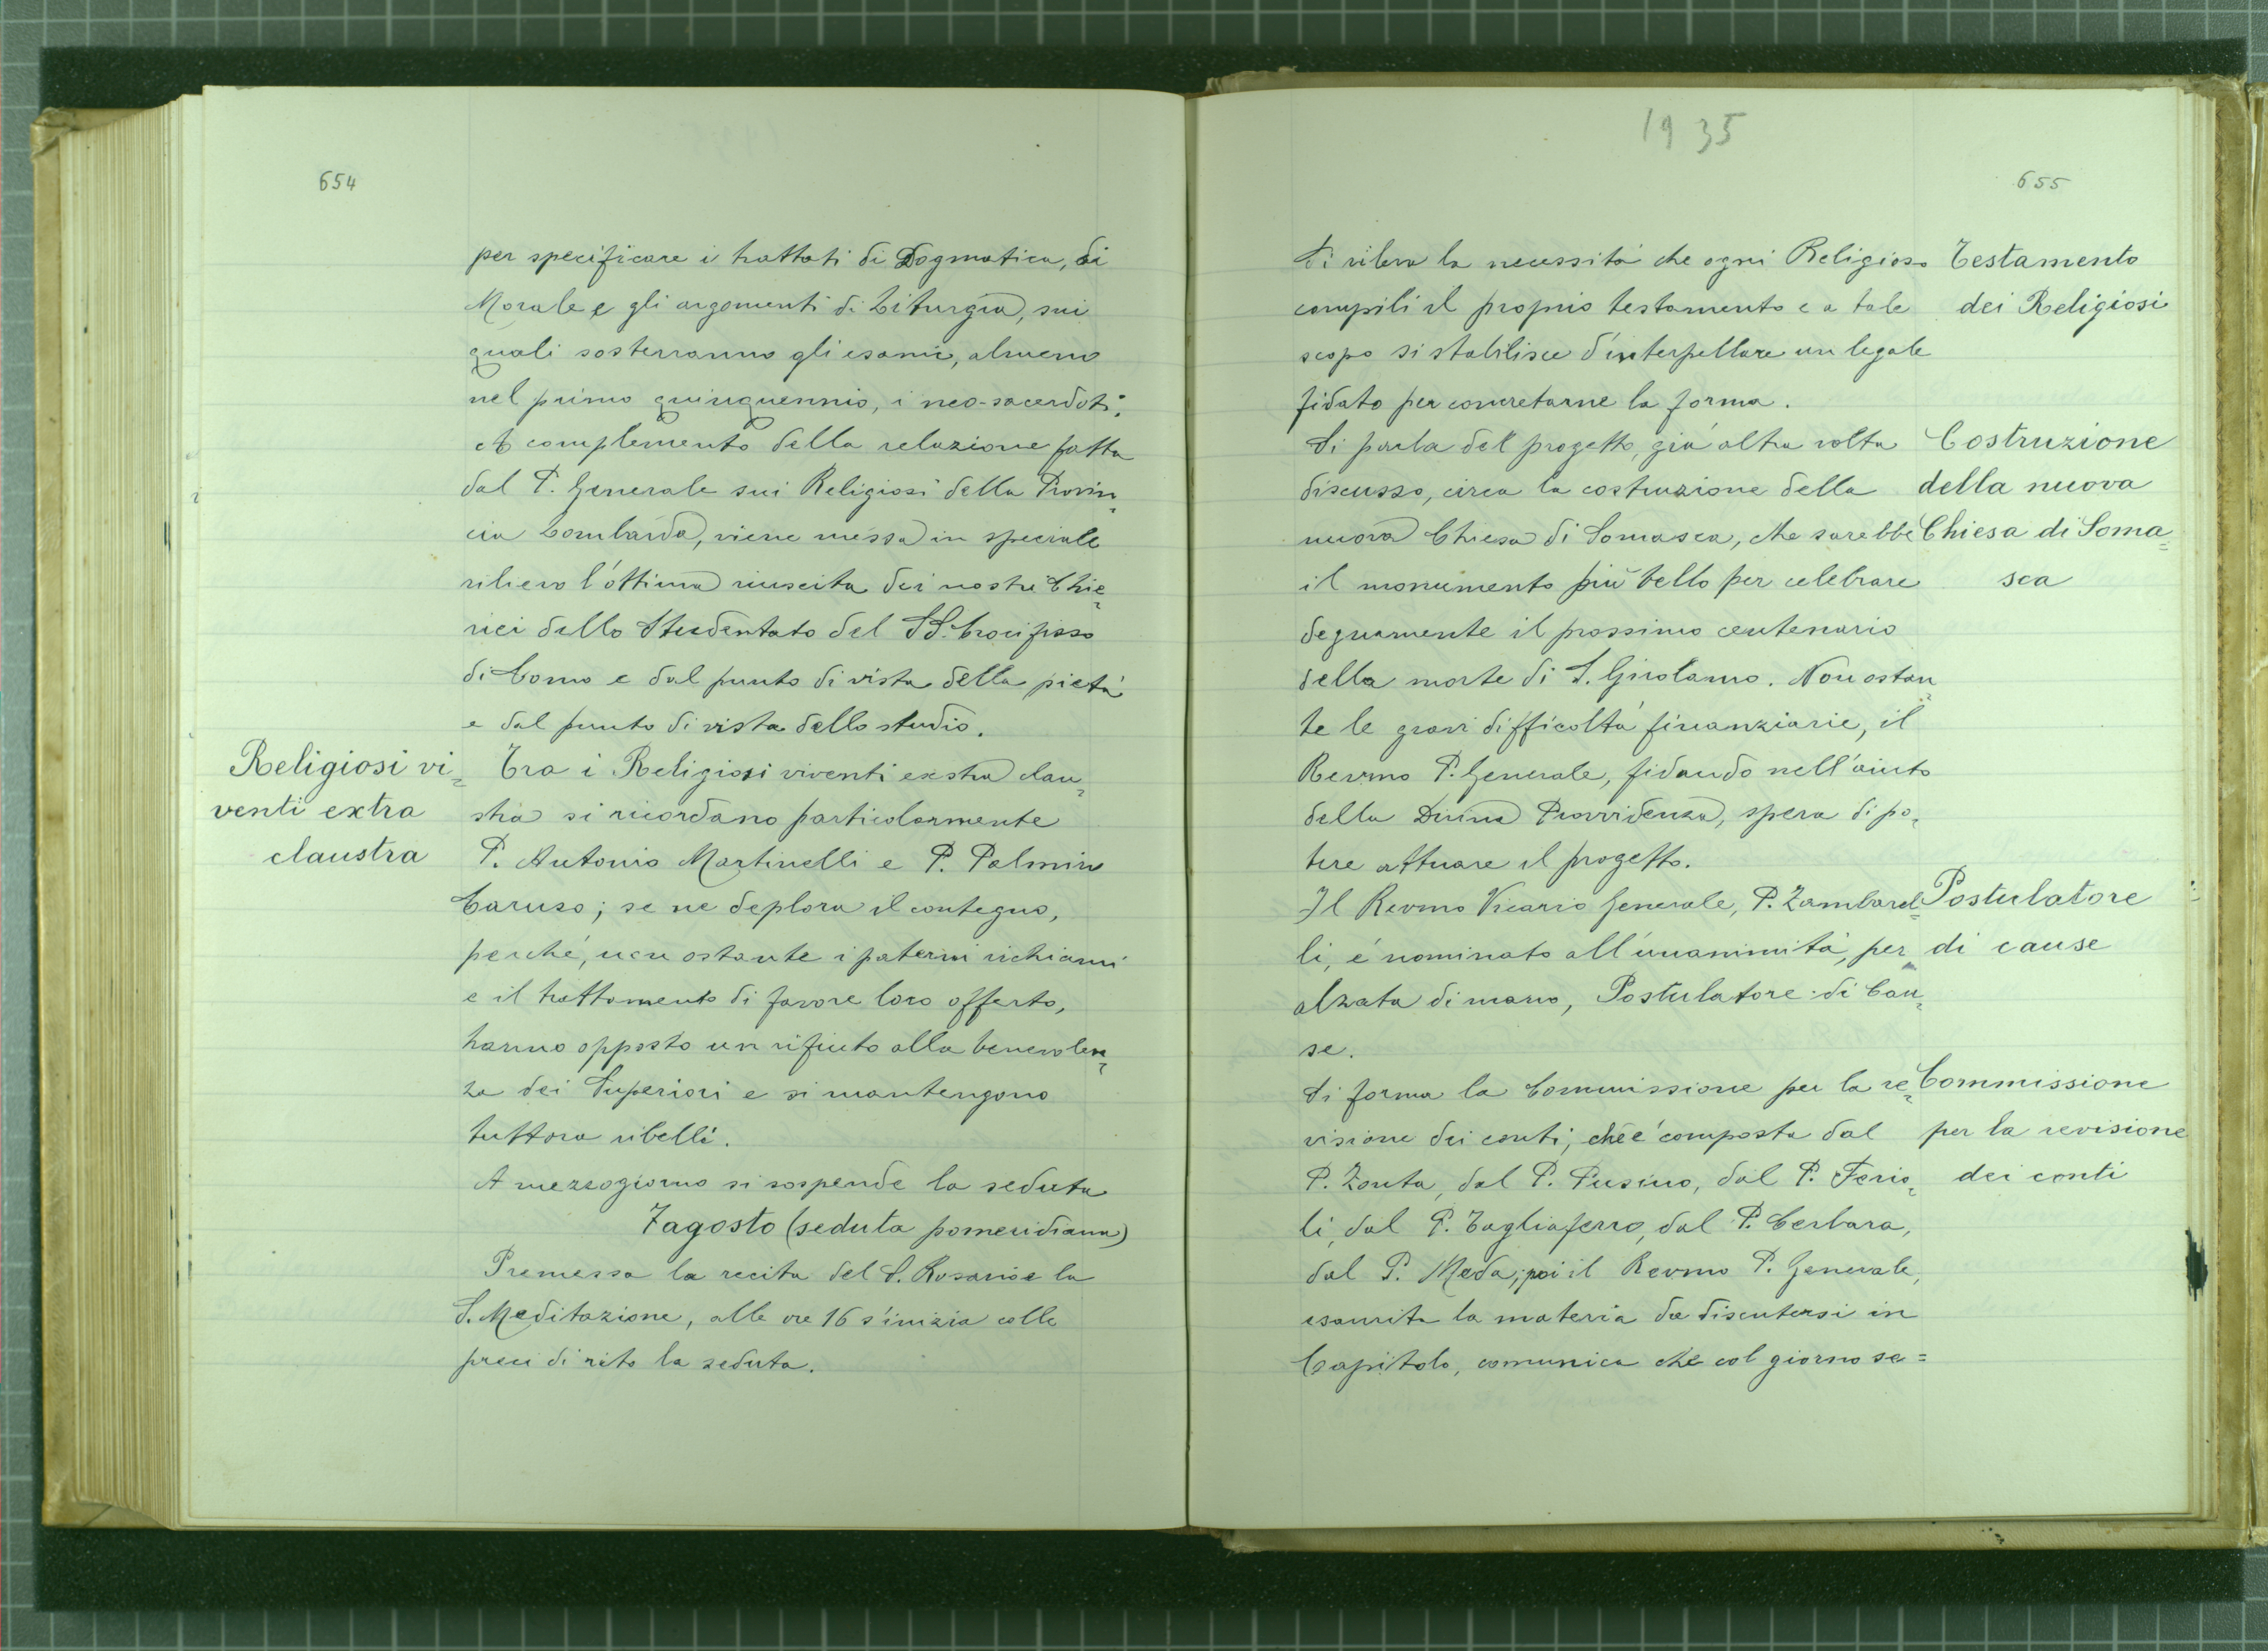 654
per specificare i trattati di Dogmatica, di
Morale e gli argomenti di Liturgia, sui
quali sosterranno gli esami, almeno
nel primo quinquennio, i neo-sacerdoti.
A complemento della relazione fatta
dal P. Generale sui Religiosi della Provin=
cia Lombarda, viene messa in speciale
rilievo l'ottima riuscita dei nostri Chie=
rici dello Studentato del SS. Crocifisso
di Como e dal punto di vista della pietà
e dal punto di vista dello studio.
Religiosi vi=
venti extra
claustra
Tra i Religiosi viventi extra clau=
stra si ricordano particolarmente
P. Antonio Martinelli e P. Palmino
Caruso; se ne deplora il contegno,
perché, non ostante i paterni richiami
e il trattamento di favore loro offerto,
hanno opposto un rifiuto alla benevolen=
za dei Superiori e si mantengono
tuttora ribelli.
A mezzogiorno si sospende la seduta
7 agosto (seduta pomeridiana)
Premessa la recita del S. Rosario e la
S. Meditazione, alle ore 16 s'inizia colle
preci di rito la seduta.
1935
655
Si rileva la necessità che ogni Religioso
compili il proprio testamento e a tale
scopo si stabilisce d'interpellare un legale
fidato per concretarne la forma.
Testamento
dei Religiosi
Si parla del progetto, già altra volta
discusso, circa la costruzione della
nuova Chiesa di Somasca, che sarebbe
il monumento più bello per celebrare
degnamente il prossimo centenario
della morte di S. Girolamo. Non ostan=
te le gravi difficoltà finanziarie, il
Revmo P. Generale, fidando nell'aiuto
della Divina Provvidenza, spera di po=
tere attuare il progetto.
Costruzione
della nuova
Chiesa di Soma=
sca
Il Revmo Vicario Generale, P. Zambarel=
li, è nominato all'unanimità, per
alzata di mano, Postulatore di Cau=
se.
Postulatore
di cause
Si forma la Commissione per la re=
visione dei conti, che è composta dal
P. Zonta, dal P. Pusino, dal P. Ferio=
li, dal P. Tagliaferro, dal P. Cerbara,
dal P. Meda; poi il Revmo P. Generale,
esaurita la materia da discutersi in
Capitolo, comunica che col giorno se=
Commissione
per la revisione
dei conti